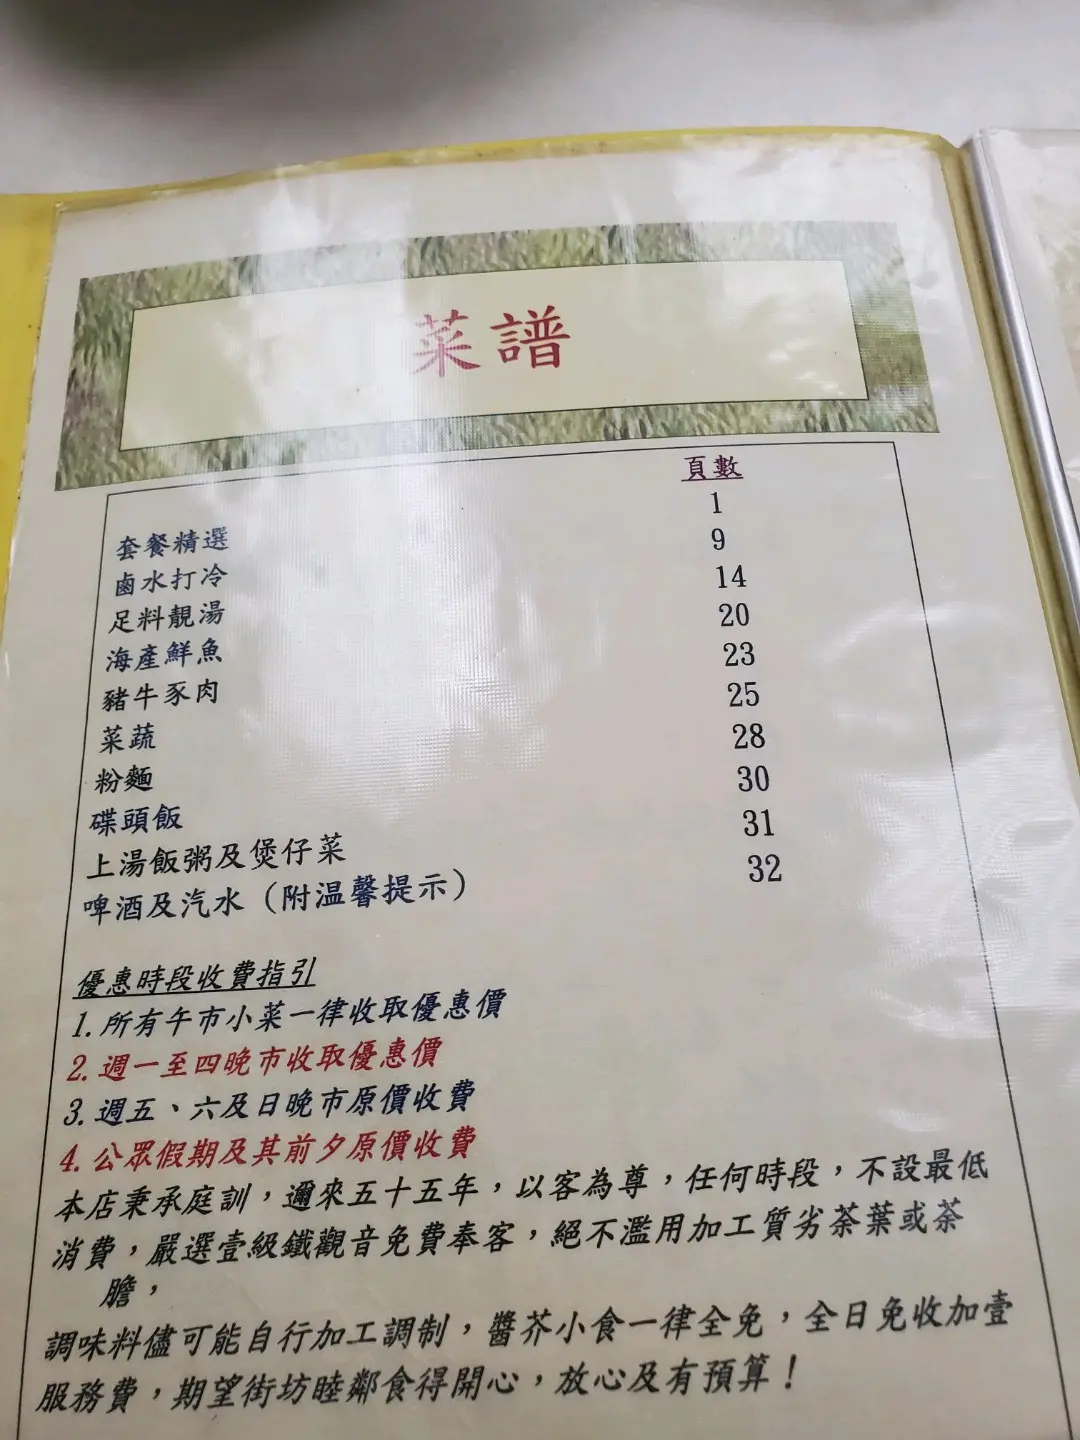 菜譜
頁數
套餐精選 1
鹵水打冷 9
足料靚湯 14
海產鮮魚 20
豬牛豕肉 23
菜蔬 25
粉麵 28
碟頭飯 30
上湯飯粥及煲仔菜 31
啤酒及汽水（附温馨提示） 32
優惠時段收費指引
1. 所有午市小菜一律收取優惠價
2. 週一至四晚市收取優惠價
3. 週五、六及日晚市原價收費
4. 公眾假期及其前夕原價收費
本店秉承庭訓，邇來五十五年，以客為尊，任何時段，不設最低
消費，嚴選壹級鐵觀音免費奉客，絕不濫用加工質劣茶葉或茶
膽，
調味料儘可能自行加工調制，醬芥小食一律全免，全日免收加壹
服務費，期望街坊睦鄰食得開心，放心及有預算！